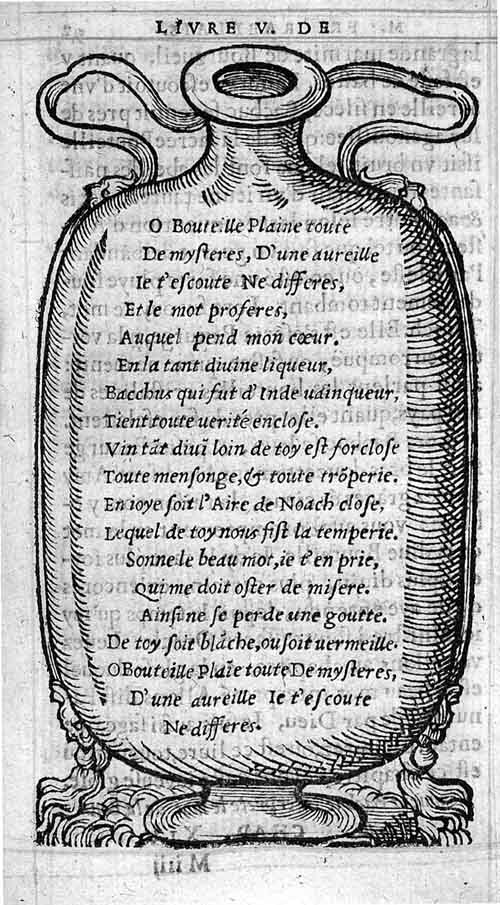 LIVRE V. DE
O Bouteille Plaine toute
De mysteres, D'une aureille
Ie t'escoute Ne differes,
Et le mot proferes,
Auquel pend mon cœur.
En la tant diuine liqueur,
Bacchus qui fut d'Inde uainqueur,
Tient toute uerité enclose.
Vin tāt diui loin de toy est forclose
Toute mensonge, & toute trōperie.
En ioye soit l'Aire de Noach close,
Lequel de toy nous fist la temperie.
Sonne le beau mot, ie t'en prie,
Qui me doit oster de misere.
Ainsi ne se perde une goutte.
De toy soit blāche, ou soit uermeille.
O Bouteille Plaīe toute De mysteres,
D'une aureille Ie t'escoute
Ne differes.